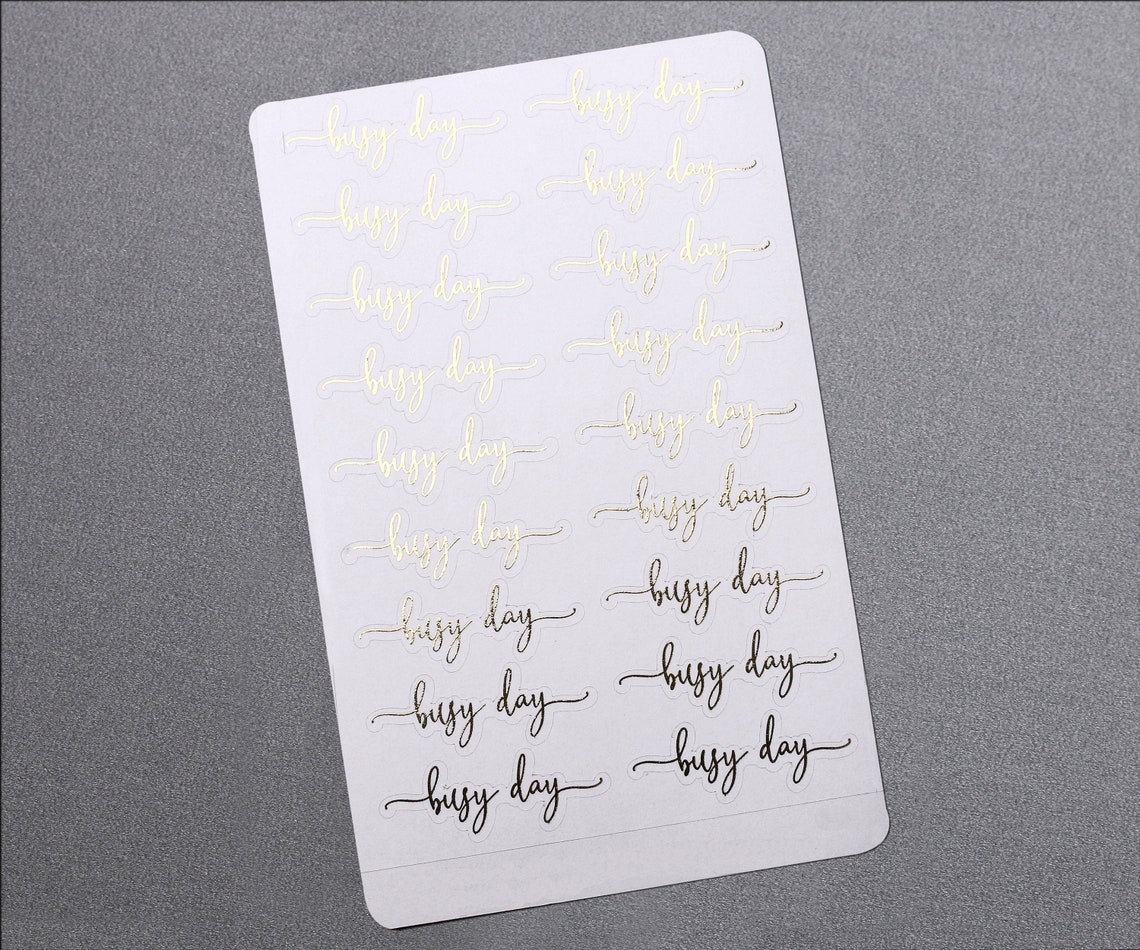 busy day busy day
busy day busy day
busy day busy day
busy day busy day
busy day busy day
busy day busy day
busy day busy day
busy day busy day
busy day busy day